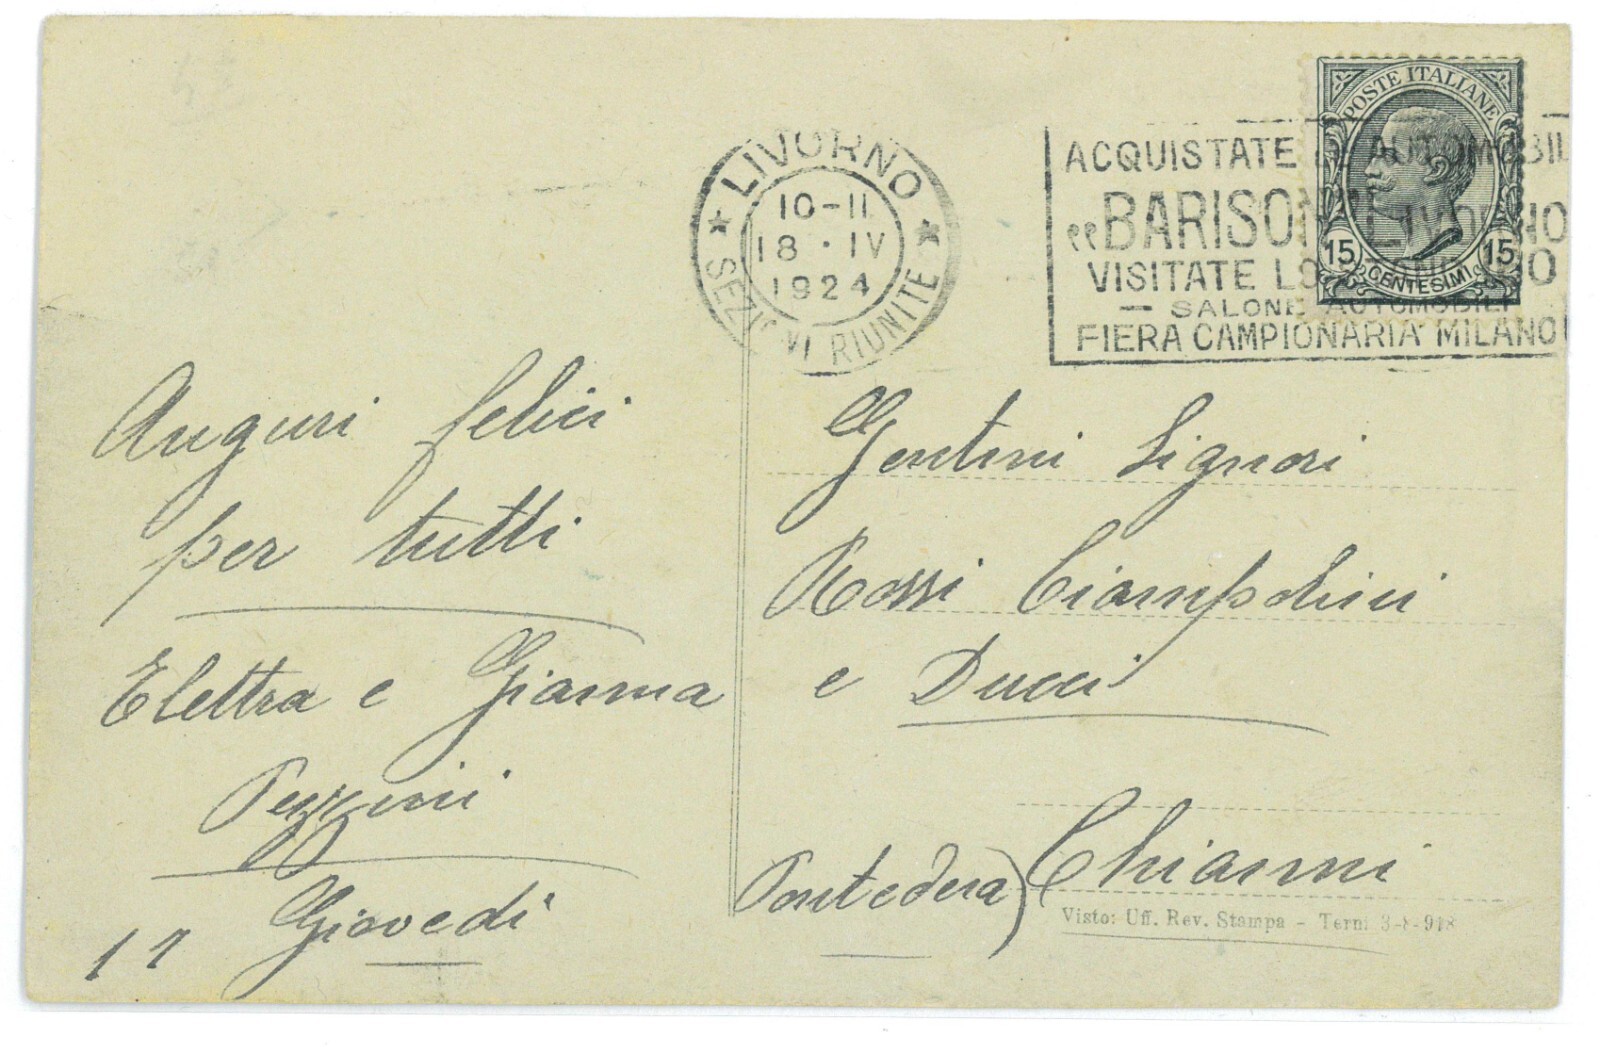 LIVORNO
10-11
18 · IV
1924
SEZIONI RIUNITE
POSTE ITALIANE
15 15
CENTESIMI
ACQUISTATE AUTOMOBIL
"BARISON LIVORNO
VISITATE LO
— SALONE AUTOMOBILI
FIERA CAMPIONARIA MILANO
Auguri felici
per tutti
Elettra e Gianna
Pezzini
17 Giovedì
Gentmi Signori
Rossi Ciampolini
e Ducci
(Pontedera) Chianni
Visto: Uff. Rev. Stampa - Terni 3-8-918